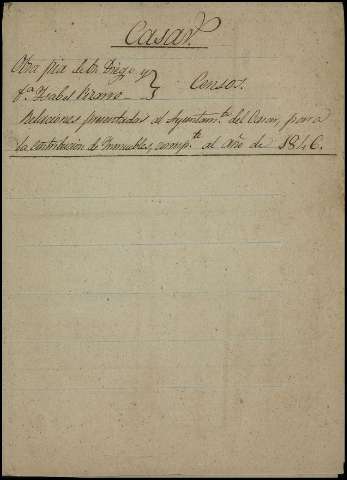 Casar.
Obra pia de Dn. Diego y
Da. Ysabel Pizarro } Censos.
Relaciones presentadas al Ayuntamto. del Casar, para
la contribucion de Ynmuebles, compte. al año de 1846.